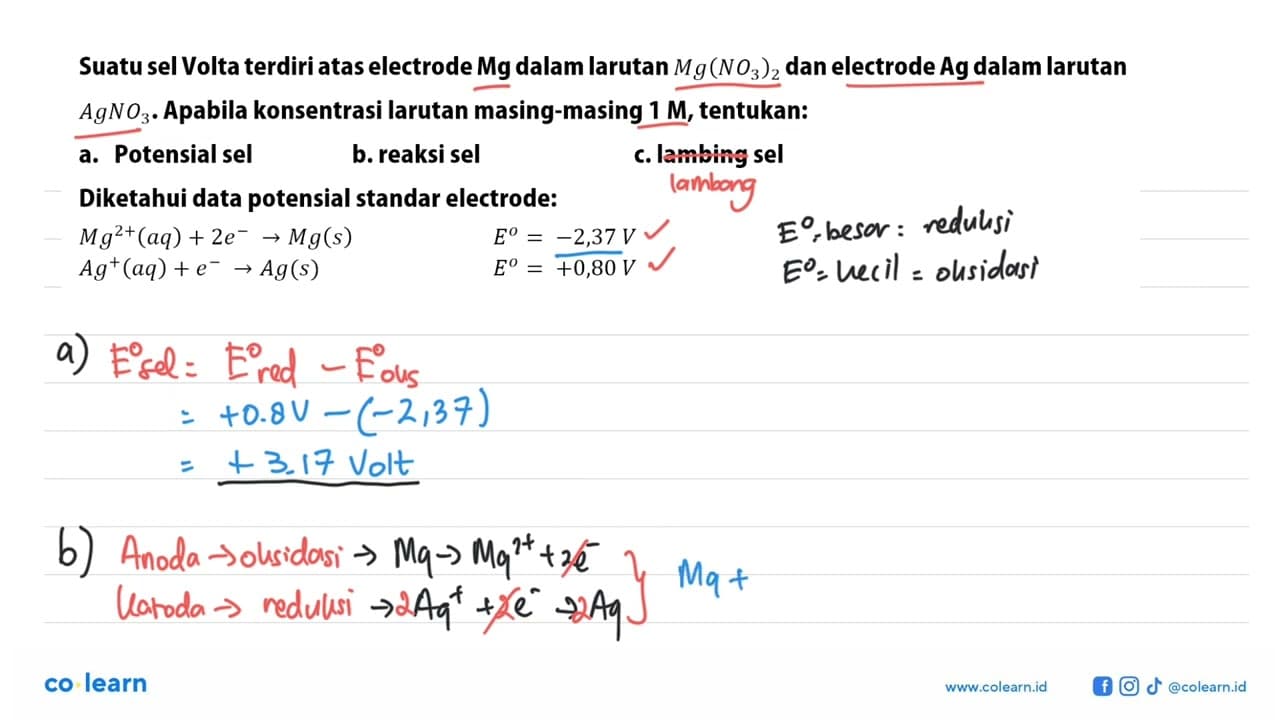 Suatu sel Volta terdiri atas electrode Mg dalam larutan Mg(NO₃)₂ dan electrode Ag dalam larutan
AgNO₃. Apabila konsentrasi larutan masing-masing 1 M, tentukan:
a. Potensial sel b. reaksi sel c. lambing sel
lambang
Diketahui data potensial standar electrode:
Mg²⁺(aq) + 2e⁻ → Mg(s) E⁰ = −2,37 V ✓
Ag⁺(aq) + e⁻ → Ag(s) E⁰ = +0,80 V ✓
E⁰, besar : reduksi
E⁰ = kecil = oksidasi
a) E⁰sel = E⁰red − E⁰oks
= +0.8V − (−2,37)
= + 3.17 Volt
b) Anoda → oksidasi → Mg → Mg²⁺ + 2e⁻
Katoda → reduksi → 2Ag⁺ + 2e⁻ → 2Ag } Mg +
co learn
www.colearn.id
@colearn.id